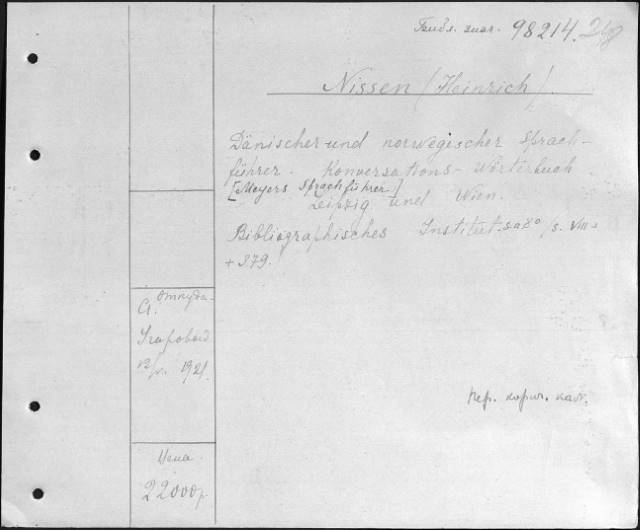 98214.
Nissen (Heinrich).
Dänischer und norwegischer Sprach-
führer. Konversations-Wörterbuch
[Meyers Sprachführer]
Leipzig und Wien.
Bibliographisches Institut. s.a 8° /s. VIII
+ 379.
Откуда
1921.
Цена
22000р.
кор. кат.